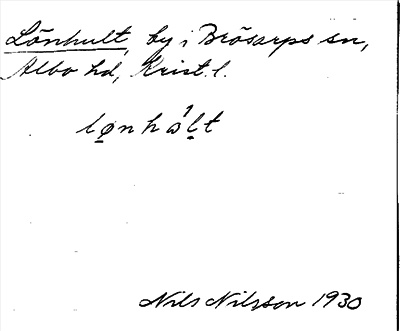 Lönhult, by i Brösarps sn,
Albo hd, Krist. l.
lø̠nhⱥ́l̠t
Nils Nilsson 1930